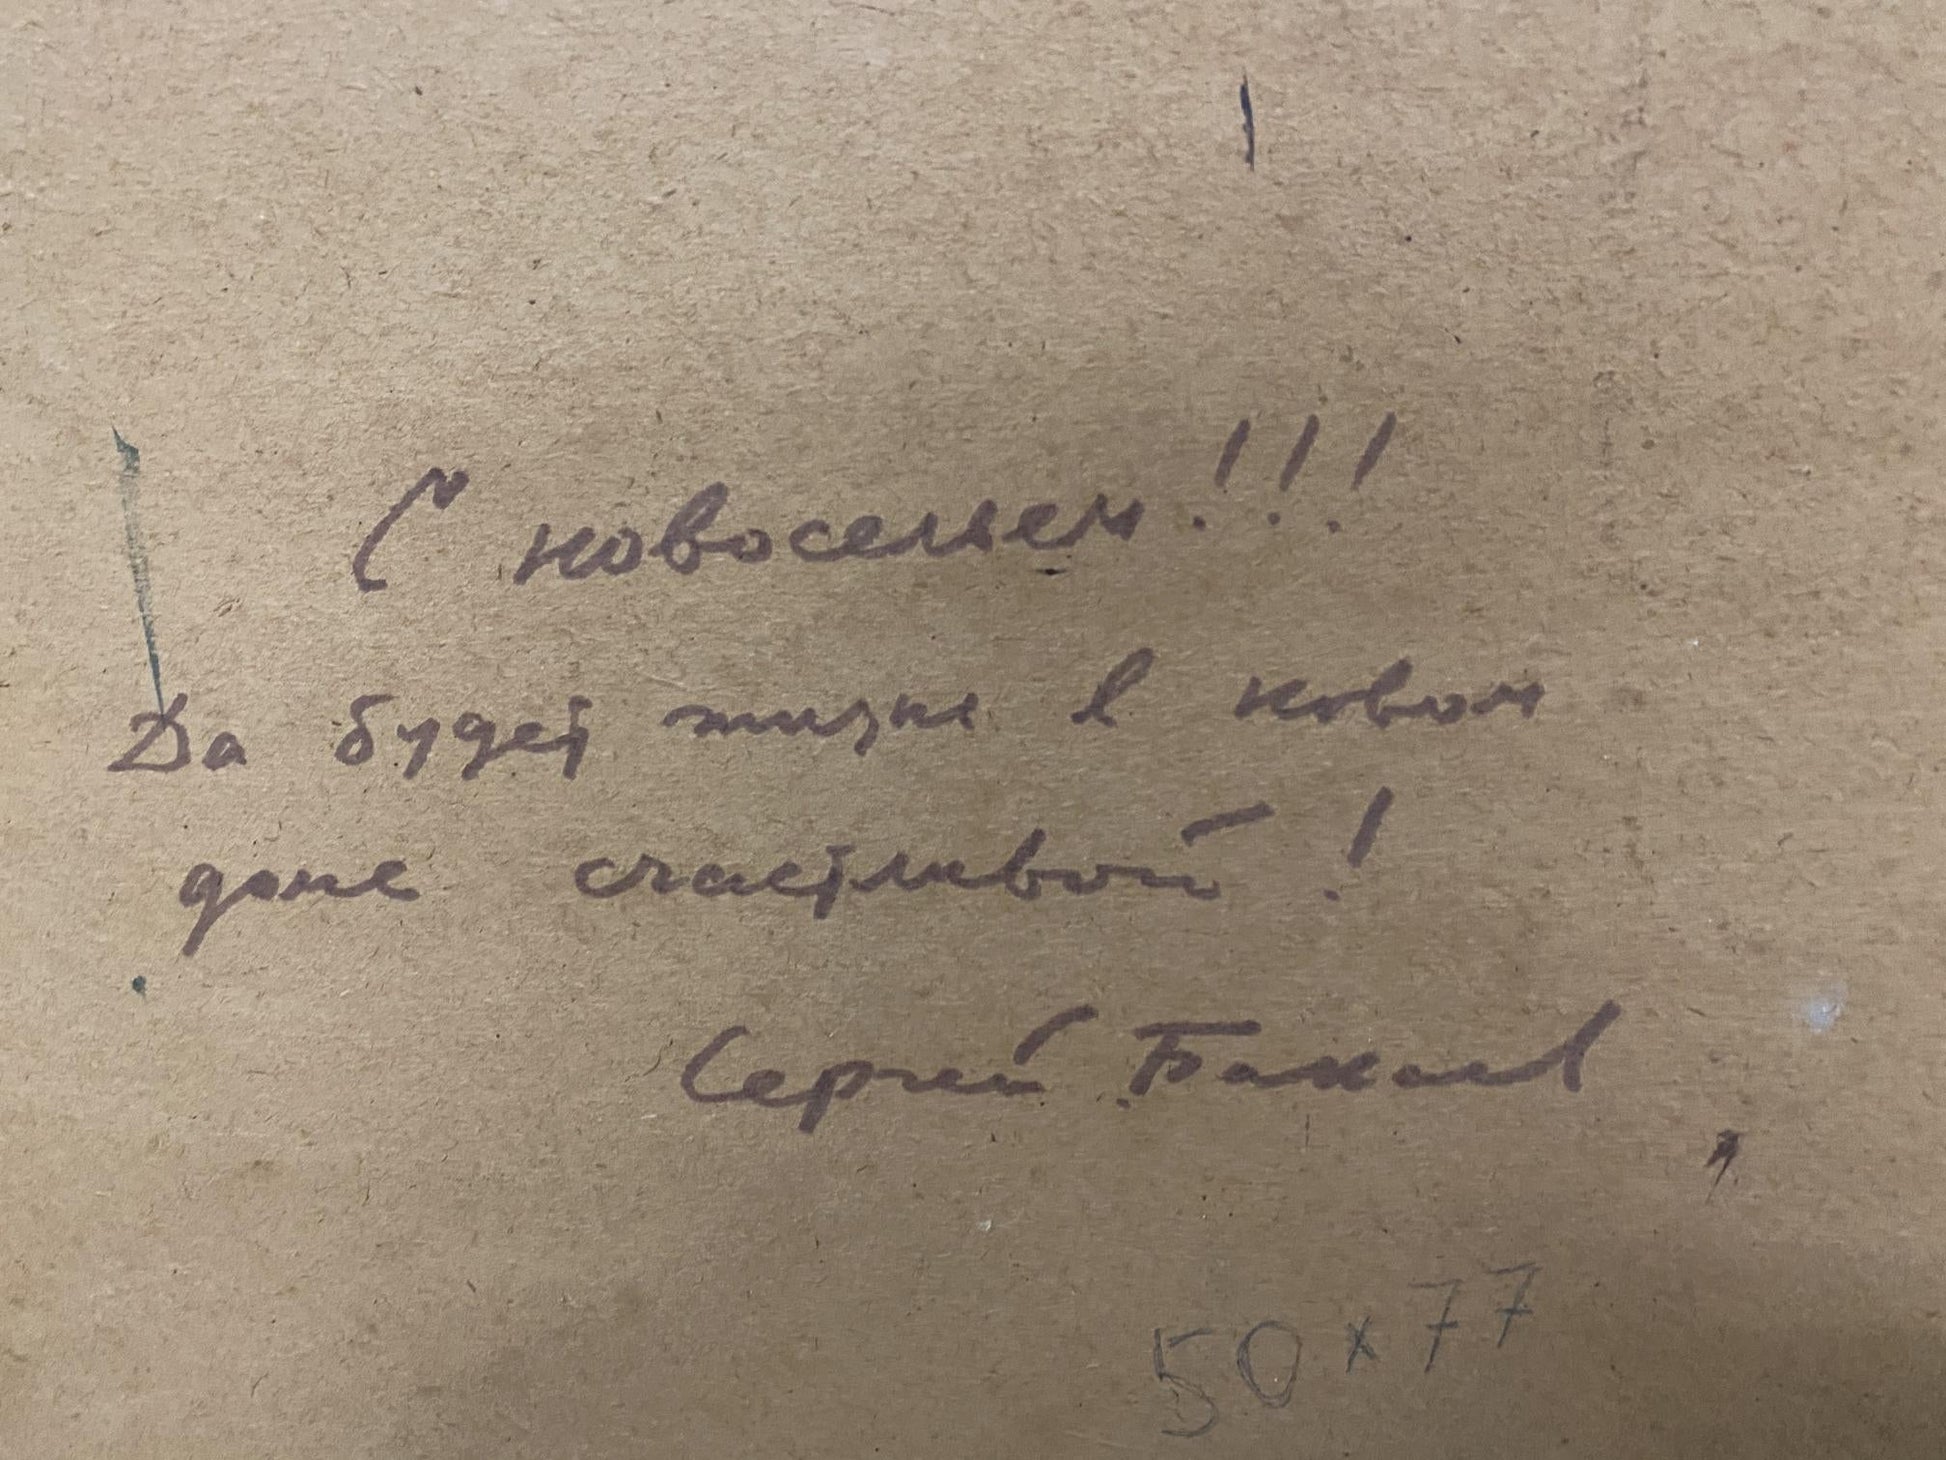 С новосельем!!!
Да будет жизнь в новом
доме счастливой!
Сергей
50 x 77